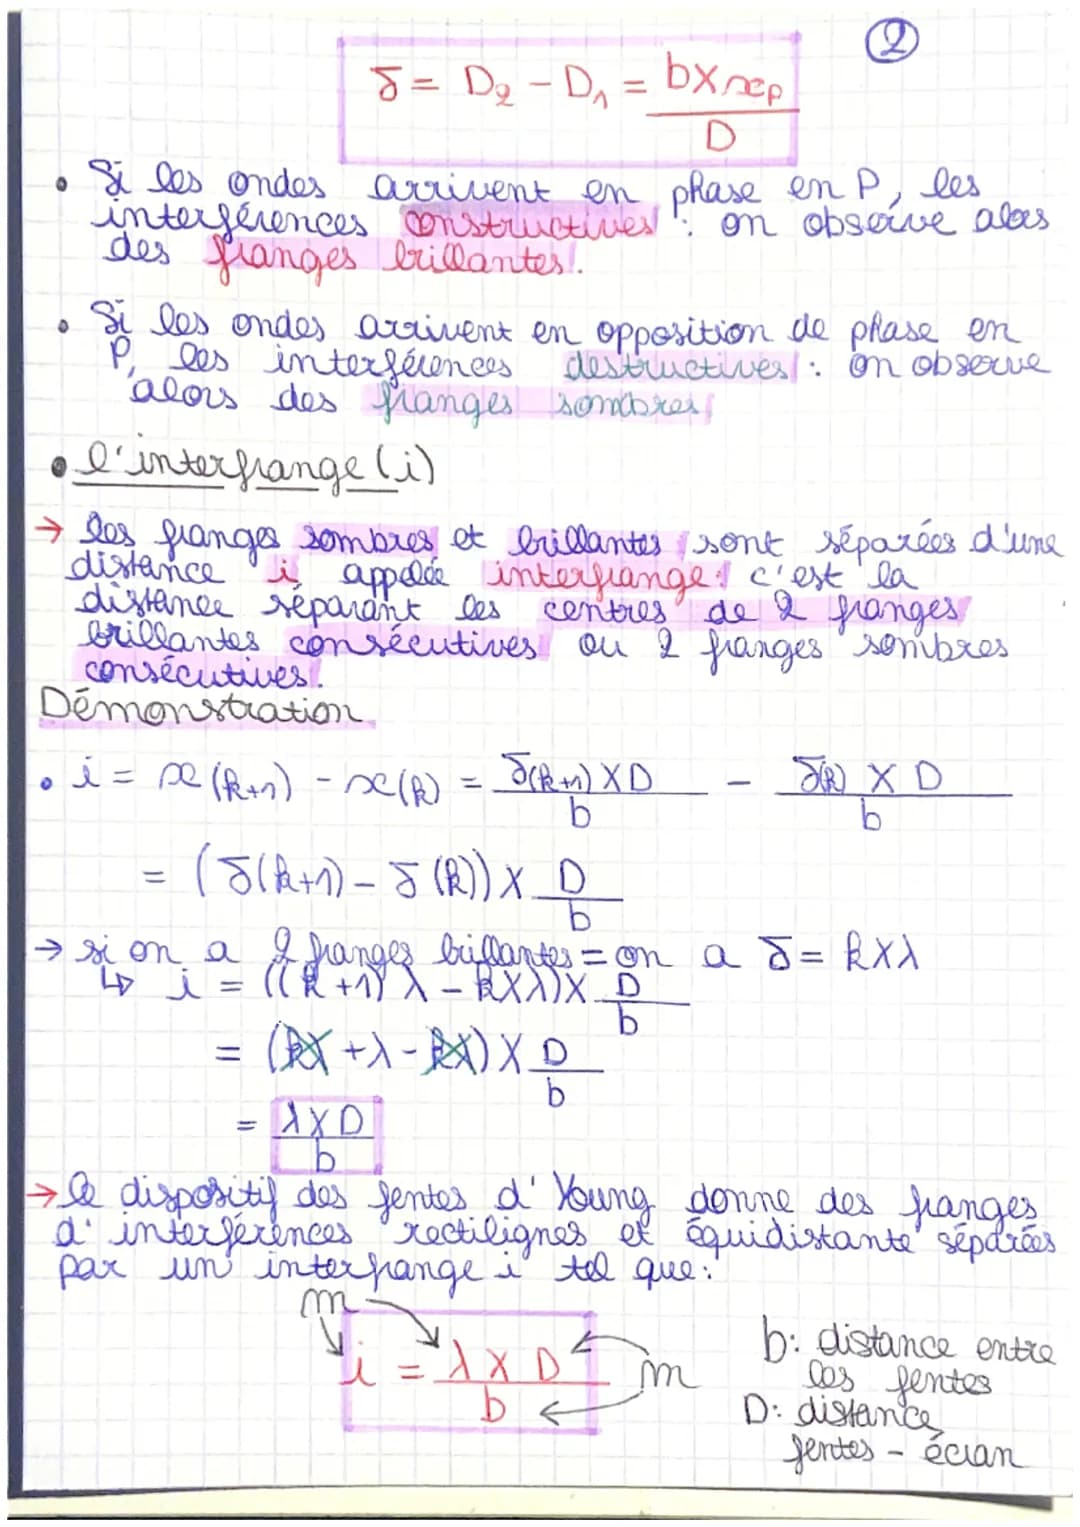 2
δ = D₂ - D₁ = b×xp/D
• Si les ondes arrivent en phase en P, les
interférences constructives : on observe alors
des franges brillantes.
• Si les ondes arrivent en opposition de phase en
P, les interférences destructives : on observe
alors des franges sombres
• l'interfrange (i)
→ les franges sombres et brillantes sont séparées d'une
distance i appelée interfrange : c'est la
distance séparant les centres de 2 franges
brillantes consécutives ou 2 franges sombres
consécutives.
Démonstration
• i = x(k+1) - x(k) = δ(k+1) × D / b - δ(k) × D / b
= (δ(k+1) - δ(k)) × D/b
→ si on a 2 franges brillantes = on a δ = k×λ
↳ i = ((k+1)λ - k×λ) × D/b
= (kλ + λ - kλ) × D/b
= λ×D/b
→ le dispositif des fentes d'Young donne des franges
d'interférences rectilignes et équidistante séparées
par un interfrange i tel que :
m
i = λ × D / b m
b: distance entre
les fentes
D: distance
fentes - écran